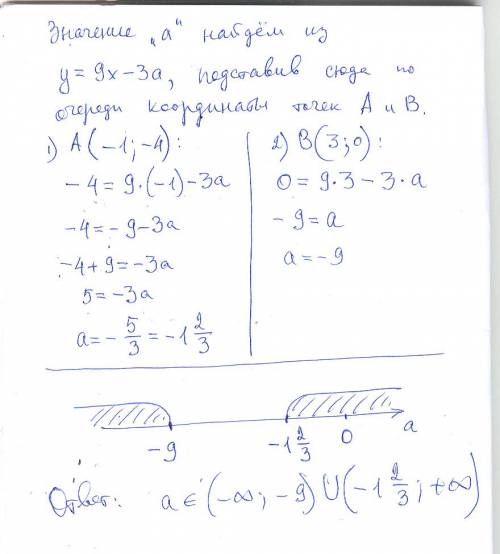 Значение „а" найдём из
y = 9x – 3a, подставив сюда по
очереди координаты точек А и В.
1) A(–1; –4):
–4 = 9·(–1) – 3a
–4 = –9 – 3a
–4 + 9 = –3a
5 = –3a
a = – 5/3 = –1 2/3
2) B(3; 0):
0 = 9·3 – 3·a
–9 = a
a = –9
–9 –1 2/3 0 a
Ответ: a ∈ (–∞; –9) ∪ (–1 2/3; +∞)